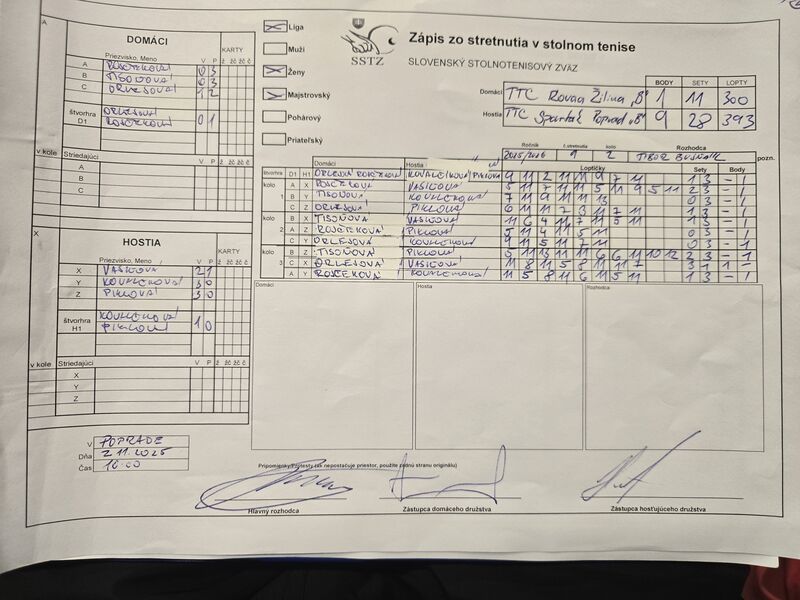 A
DOMÁCI
Priezvisko, Meno V P KARTY
ž žč žč č
A ROSČEKOVÁ 0 3
B TISOŇOVÁ 0 3
C ORLESOVÁ 1 2
štvorhra D1 ORLESOVÁ ROSČEKOVÁ 0 1
v kole Striedajúci V P ž žč žč č
A
B
C
X
HOSTIA
Priezvisko, Meno V P KARTY
ž žč žč č
X VASICOVÁ 2 1
Y 3 0
Z PIKLOVÁ 3 0
štvorhra H1 PIKLOVÁ 1 0
v kole Striedajúci V P ž žč žč č
X
Y
Z
V POPRADE
Dňa 2.11.2025
Čas 10:00
Liga
Muži
Ženy
Majstrovský
Pohárový
Priateľský
SSTZ
Zápis zo stretnutia v stolnom tenise
SLOVENSKÝ STOLNOTENISOVÝ ZVÄZ
BODY SETY LOPTY
Domáci TTC Rovan Žilina „B" 1 11 300
Hostia TTC Spartak Poprad „B" 9 28 393
Ročník č.stretnutia kolo Rozhodca
2025/2026 2 TIBOR
pozn.
Domáci Hostia Loptičky Sety Body
štvorhra D1 H1 1 3 – 1
kolo 1 A X ROSČEKOVÁ VASICOVÁ 2 3 – 1
B Y TISOŇOVÁ 7 11 9 11 11 13 0 3 – 1
C Z ORLESOVÁ PIKLOVÁ 1 3 – 1
kolo 2 B X TISOŇOVÁ VASICOVÁ 11 6 4 11 7 11 5 11 1 3 – 1
A Z ROSČEKOVÁ PIKLOVÁ 0 3 – 1
C Y ORLESOVÁ 9 11 5 11 7 11 0 3 – 1
kolo 3 B Z TISOŇOVÁ PIKLOVÁ 2 3 – 1
C X ORLESOVÁ VASICOVÁ 11 8 11 5 8 11 11 7 3 1 1 –
A Y ROSČEKOVÁ 11 5 8 11 6 11 5 11 1 3 – 1
Domáci
Hostia
Rozhodca
Pripomienky/Protesty (ak nepostačuje priestor, použite zadnú stranu originálu)
Hlavný rozhodca
Zástupca domáceho družstva
Zástupca hosťujúceho družstva